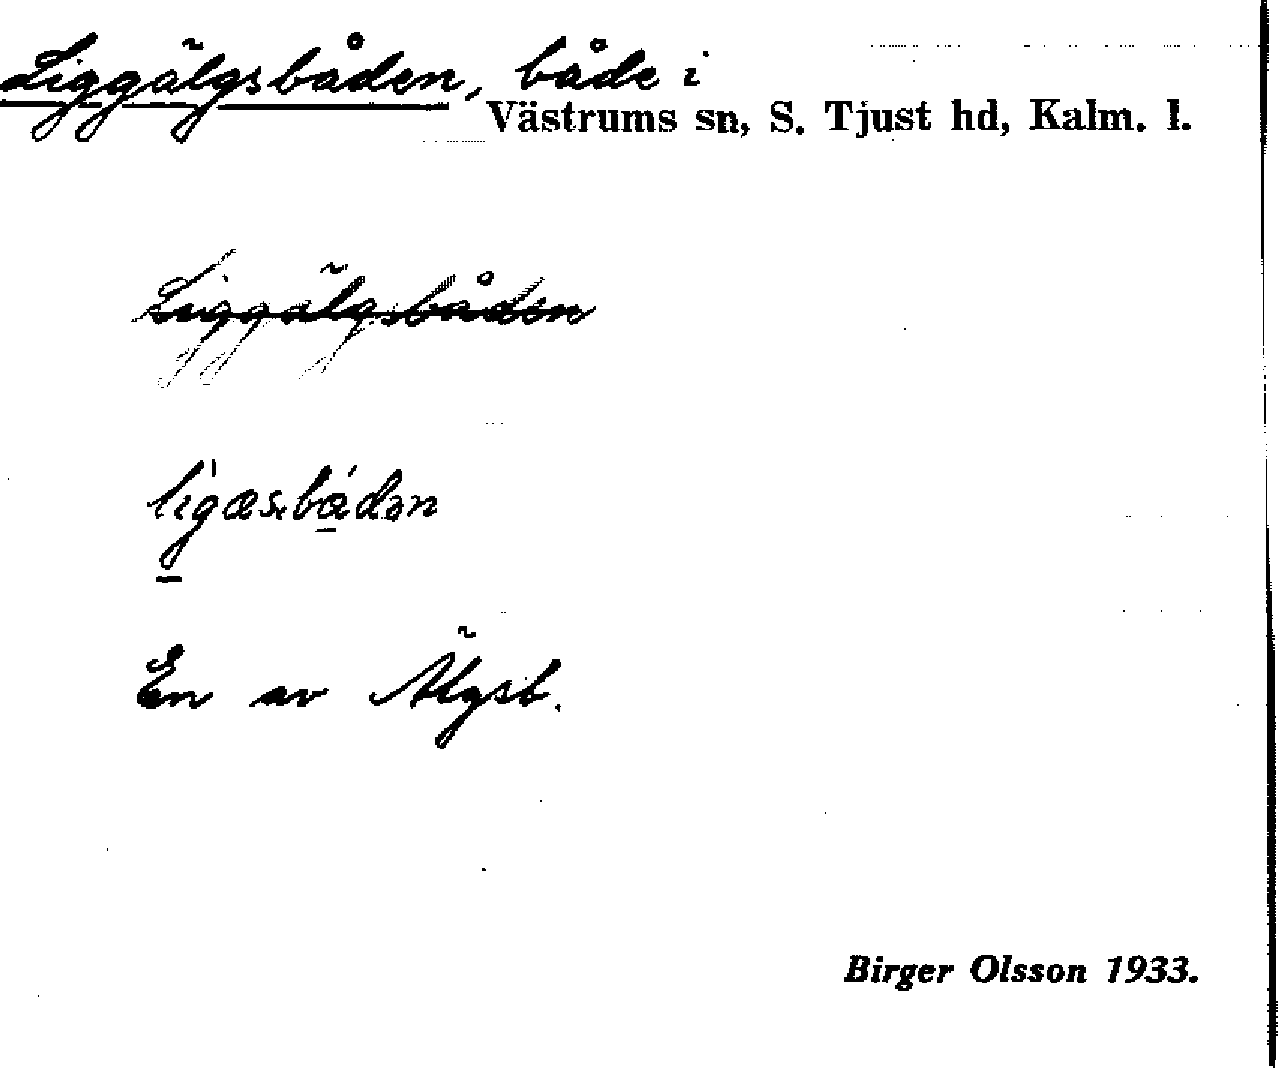 Liggälgsbåden, både i
Västrums sn, S. Tjust hd, Kalm. l.
Liggälgsbåden
En av Älgsb.
Birger Olsson 1933.